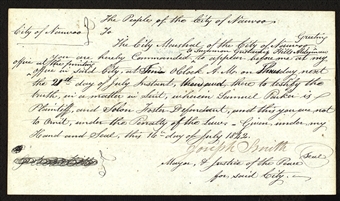 The People of the City of Nauvoo
City of Nauvoo To
The City Marshal, of the City of Nauvoo Greeting
to
you are hereby Commanded, to appear before me at my
office in said City, at O'Clock A.M. on next
the day of July Instant, there to testify the
truth, in a matter in suit, wherein Samuel Parker is
Plaintiff, and Foster Defendant, and this you are not
to Omit, under the Penalty of the Law. Given under my
Hand and Seal, this 16th day of July 1842.
Joseph Smith Seal
Mayor, & Justice of the Peace
for said City